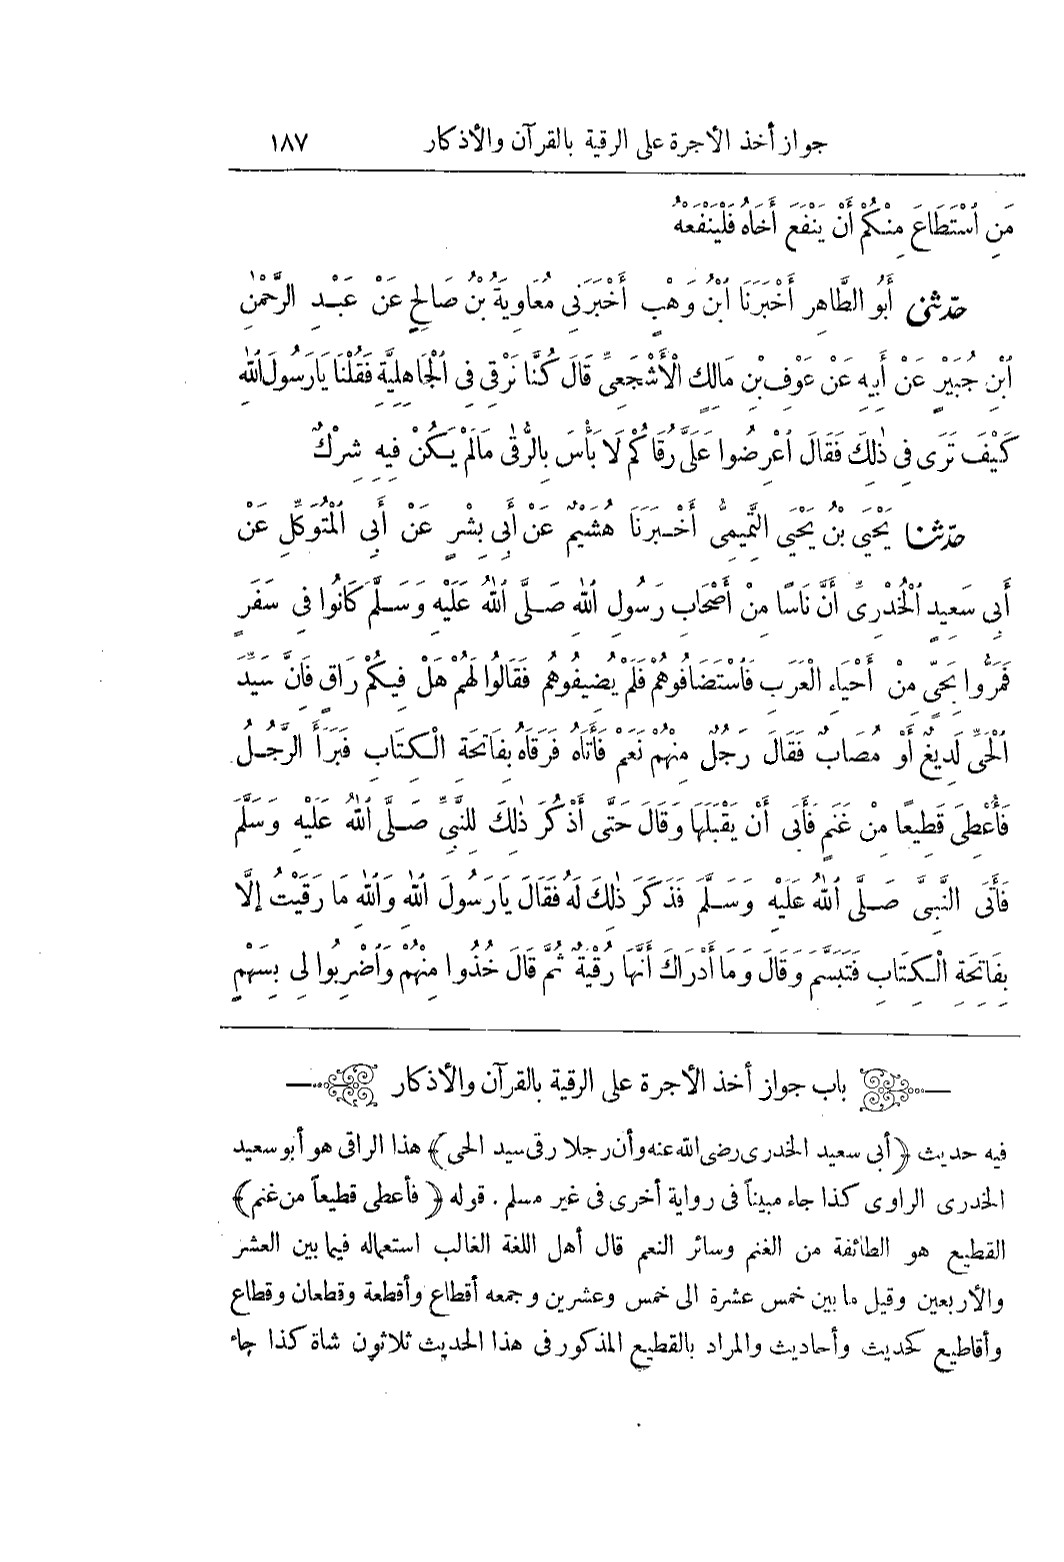 جواز أخذ الأجرة على الرقية بالقرآن والأذكار ١٨٧
مَنِ ٱسْتَطَاعَ مِنْكُمْ أَنْ يَنْفَعَ أَخَاهُ فَلْيَنْفَعْهُ
حَدَّثَنِى أَبُو الطَّاهِرِ أَخْبَرَنَا ٱبْنُ وَهْبٍ أَخْبَرَنِى مُعَاوِيَةُ بْنُ صَالِحٍ عَنْ عَبْدِ الرَّحْمٰنِ
ٱبْنِ جُبَيْرٍ عَنْ أَبِيهِ عَنْ عَوْفِ بْنِ مَالِكٍ الْأَشْجَعِىِّ قَالَ كُنَّا نَرْقِى فِى ٱلْجَاهِلِيَّةِ فَقُلْنَا يَارَسُولَ ٱللهِ
كَيْفَ تَرَى فِى ذٰلِكَ فَقَالَ ٱعْرِضُوا عَلَىَّ رُقَاكُمْ لَا بَأْسَ بِالرُّقٰى مَالَمْ يَكُنْ فِيهِ شِرْكٌ
حَدَّثَنَا يَحْيَى بْنُ يَحْيَى التَّمِيمِىُّ أَخْبَرَنَا هُشَيْمٌ عَنْ أَبِى بِشْرٍ عَنْ أَبِى ٱلْمُتَوَكِّلِ عَنْ
أَبِى سَعِيدٍ ٱلْخُدْرِىِّ أَنَّ نَاسًا مِنْ أَصْحَابِ رَسُولِ ٱللهِ صَلَّى ٱللهُ عَلَيْهِ وَسَلَّمَ كَانُوا فِى سَفَرٍ
فَمَرُّوا بِحَىٍّ مِنْ أَحْيَاءِ الْعَرَبِ فَٱسْتَضَافُوهُمْ فَلَمْ يُضِيفُوهُمْ فَقَالُوا لَهُمْ هَلْ فِيكُمْ رَاقٍ فَانَّ سَيِّدَ
ٱلْحَىِّ لَدِيغٌ أَوْ مُصَابٌ فَقَالَ رَجُلٌ مِنْهُمْ نَعَمْ فَأَتَاهُ فَرَقَاهُ بِفَاتِحَةِ الْكِتَابِ فَبَرَأَ الرَّجُلُ
فَأُعْطِىَ قَطِيعًا مِنْ غَنَمٍ فَأَبَى أَنْ يَقْبَلَهَا وَقَالَ حَتَّى أَذْكُرَ ذٰلِكَ لِلنَّبِىِّ صَلَّى ٱللهُ عَلَيْهِ وَسَلَّمَ
فَأَتَى النَّبِىَّ صَلَّى ٱللهُ عَلَيْهِ وَسَلَّمَ فَذَكَرَ ذٰلِكَ لَهُ فَقَالَ يَارَسُولَ ٱللهِ وَٱللهِ مَا رَقَيْتُ إِلَّا
بِفَاتِحَةِ الْكِتَابِ فَتَبَسَّمَ وَقَالَ وَمَا أَدْرَاكَ أَنَّهَا رُقْيَةٌ ثُمَّ قَالَ خُذُوا مِنْهُمْ وَٱضْرِبُوا لِى بِسَهْمٍ
باب جواز أخذ الأجرة على الرقية بالقرآن والأذكار
فيه حديث ﴿أبى سعيد الخدرى رضى الله عنه وأن رجلا رقى سيد الحى﴾ هذا الراقى هو أبو سعيد
الخدرى الراوى كذا جاء مبيناً فى رواية أخرى فى غير مسلم. قوله ﴿فأعطى قطيعاً من غنم﴾
القطيع هو الطائفة من الغنم وسائر النعم قال أهل اللغة الغالب استعماله فيما بين العشر
والأربعين وقيل ما بين خمس عشرة الى خمس وعشرين وجمعه أقطاع وأقطعة وقطعان وقطاع
وأقاطيع كحديث وأحاديث والمراد بالقطيع المذكور فى هذا الحديث ثلاثون شاة كذا جاء